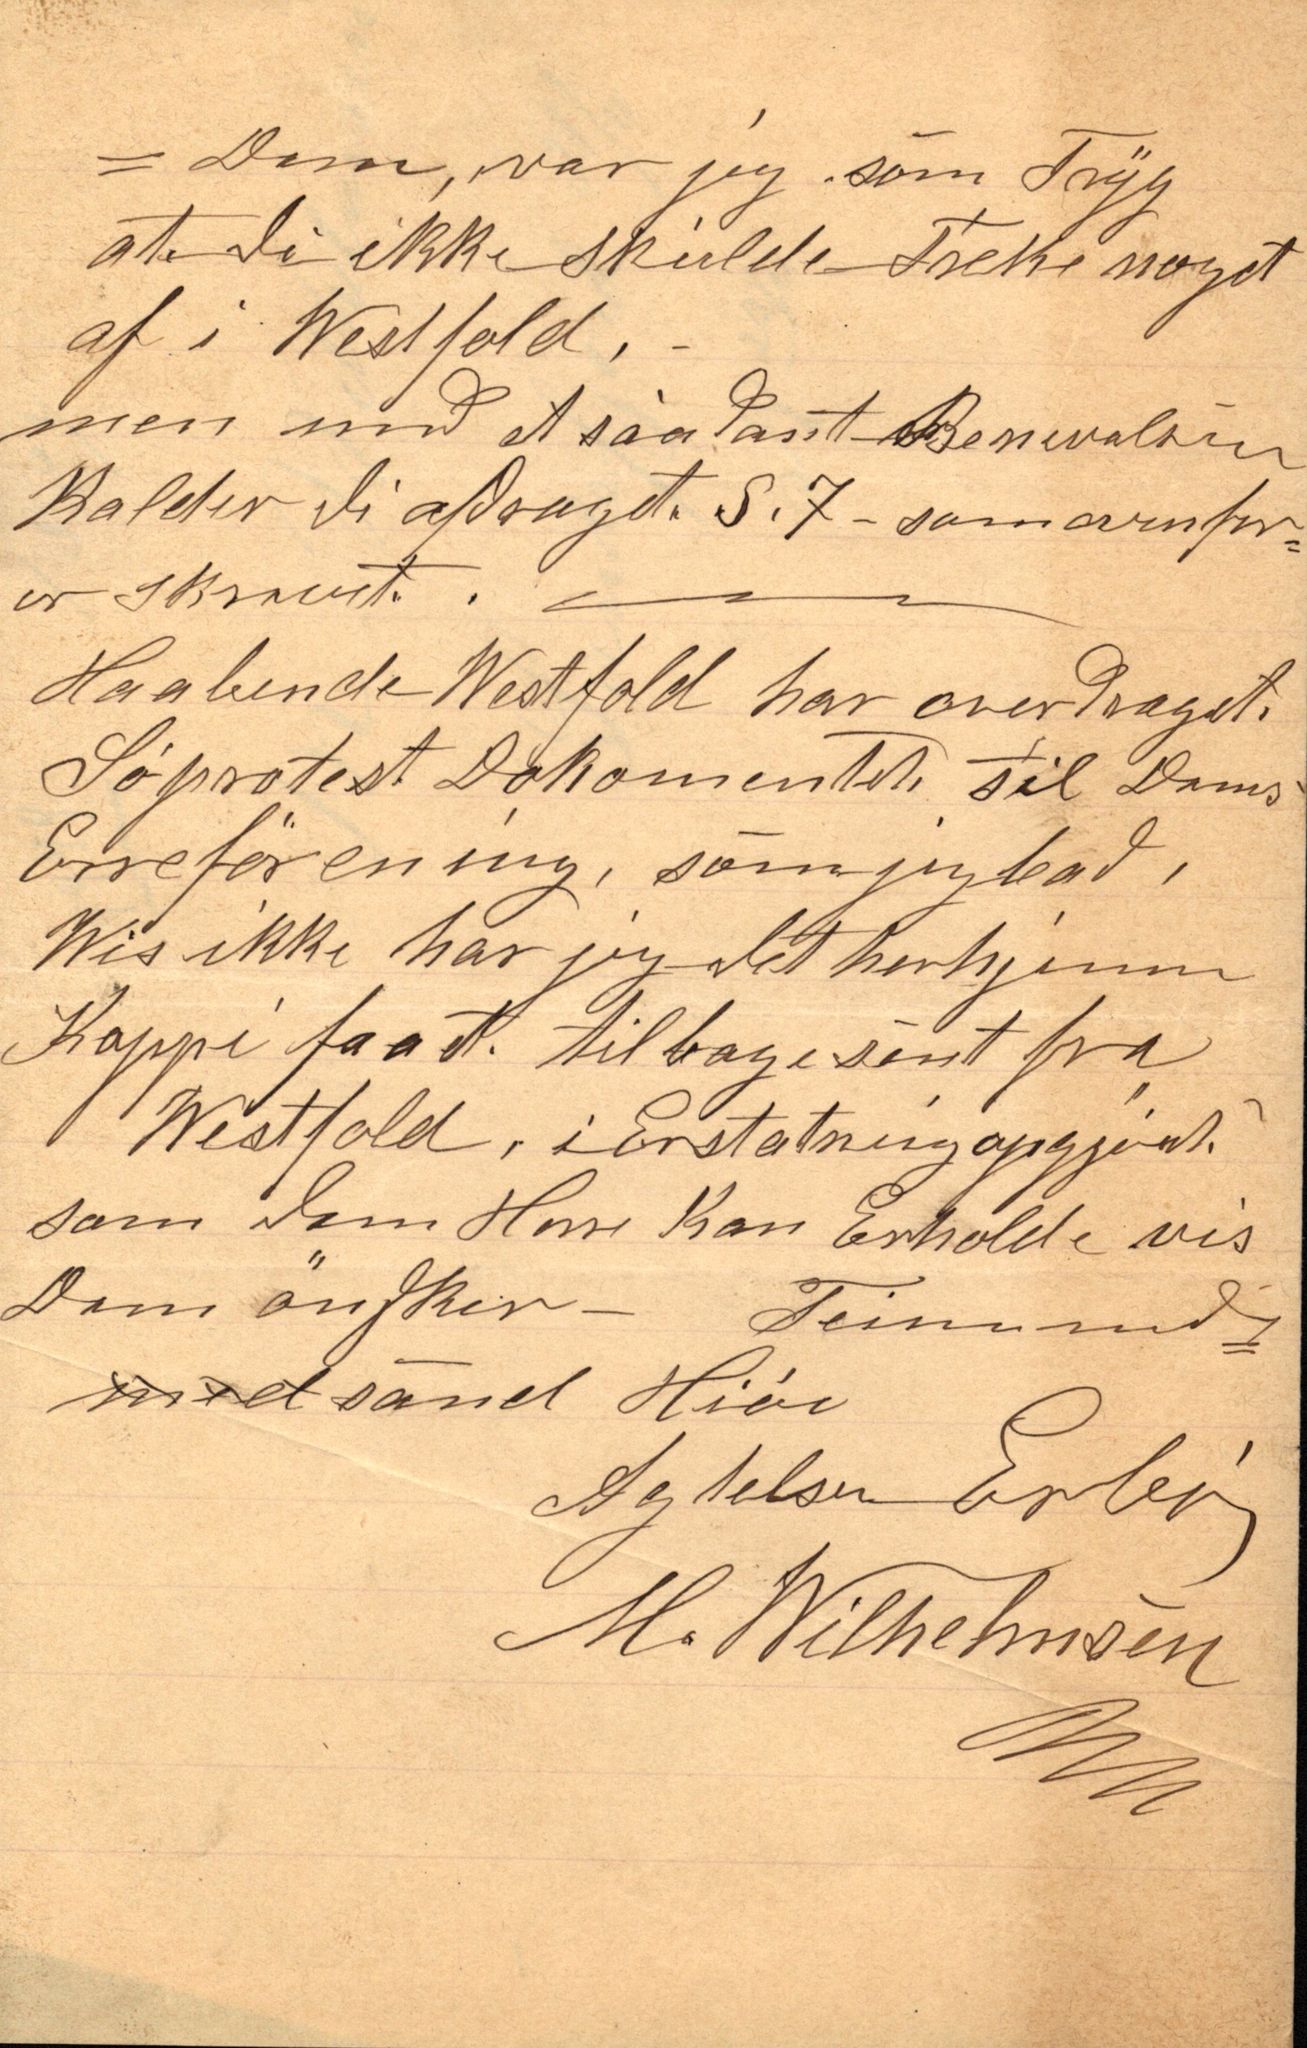 = Dem, var jeg som Tryg
at Di ikke skulde Treke noget
af i Westfold, -
men med et saadant Benevalsen
Kalder Di afdraget. S. 7 - som ovenfor=
er skrevet. .
Haabende Westfold har overdraget.
Söprotest Dokomentet til Dems
Erreförening, som jeg bad,
Wis ikke har jeg det herhjemm
Koppi faaet. tilbagesent fra
Westfold, i Erstatningopgjöret.
som Dem Herre Kan Erholde vis
Dem önsker - Teinmed=
med sand Hiöi
Agtelsen Erbö
M. Wilhelmsen